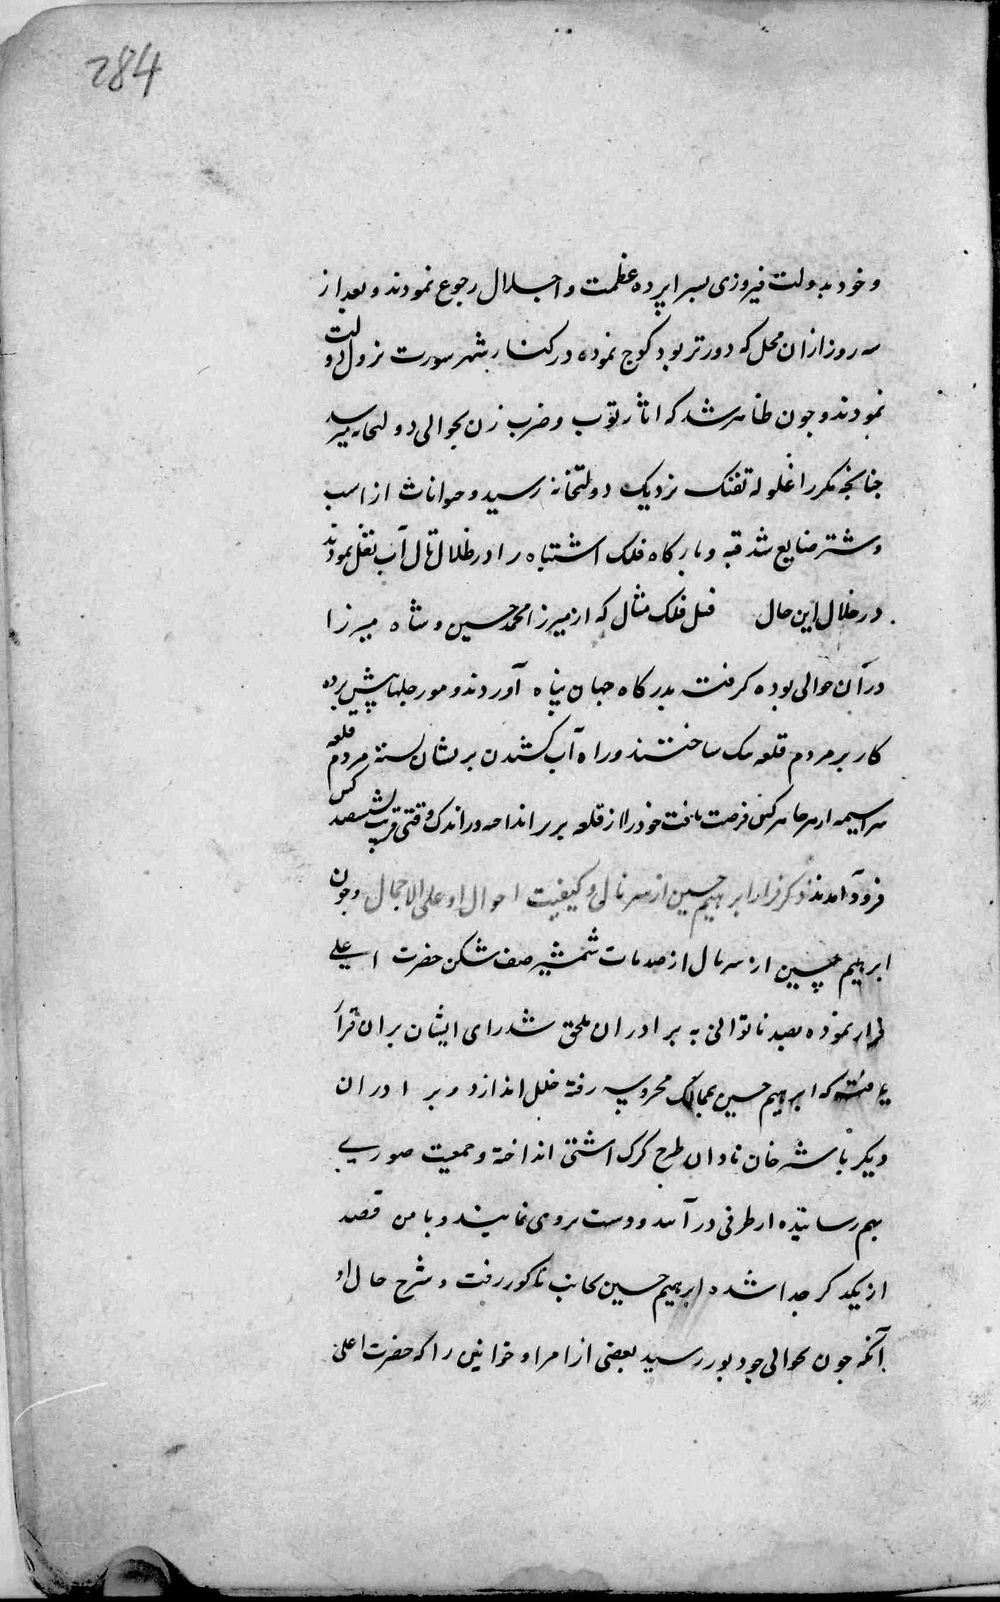 284
و خود بدولت فیروزی بسراپرده عظمت و اجلال رجوع نمودند و بعد از
سه روز ازان محل که دورتر بود کوچ نموده در کنار شهر سورت نزول دولت
نمودند و چون ظاهر شد که اثار توپ و ضرب زن بحوالی دولتخانه میرسد
چنانچه مکررا غلوله تفنک نزدیک دولتخانه رسید و حیوانات از اسب
و شتر ضایع شد قبه و بارکاه فلک اشتباه را در ظلال تال آب نقل نمودند
در خلال این حال فیل فلک مثال که از میرزا محمد حسین و شاه میرزا
در آن حوالی بوده کرفته بدرکاه جهان پناه آوردند و مورچلها پیش برده
کار بر مردم قلعه تنک ساختند و راه آب کشیدن بریشان بسته مردم قلعه
سراسیمه از هر جا هر کس فرصت یافت خود را از قلعه بزیر انداخته در اندک وقتی قریب ششصد کس
فرود آمدند ذکر فرار ابرهیم حسین از سرنال و کیفیت احوال او علی الاجمال و چون
ابرهیم حسین از سرنال از صدمات شمشیر صف شکن حضرت اعلی
فرار نموده بصد ناتوانی به برادران ملحق شد رای ایشان بران قرار
یافت که ابرهیم حسین بممالک محروسه رفته خلل اندازد و برادران
دیکر با شیر خان نادان طرح کرک اشتی انداخته و جمعیت صوری
بهم رسانیده از طرفی در آمده دست بردی نمایند و باین قصد
از یکدکر جدا شده ابرهیم حسین بجانب ناکور رفت و شرح حال او
آنکه چون بحوالی جودپور رسید بعضی از امرا و خوانین را که حضرت اعلی